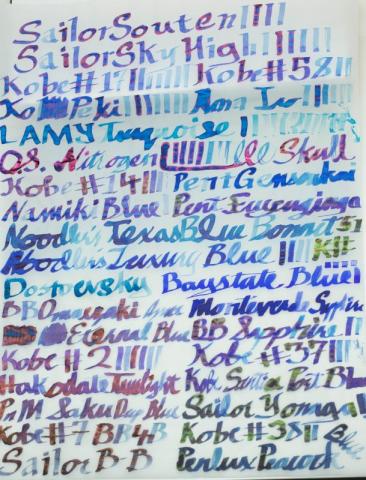 Sailor Souten
Sailor Sky High
Kobe#17 Kobe#58
Ko Peki Ama Iro
LAMY Turquoise
O.S. Nitrogen Skull
Kobe#14 Pent Gensoukai
Namiki Blue Pent
Noodlers Texas Blue Bonnet 51
Noodlers Luxury Blue
Dostoevsky Baystate Blue
BB Omaezaki Monteverde Sapphire
Eternal Blue BB Sapphire
Kobe#2 Kobe#37
Hakodate Twilight Kobe Port
PnM Saku Blue Sailor Yonaga
Kobe#7 BB4B Kobe#38 Blue
Sailor B-B Penlux Peacock